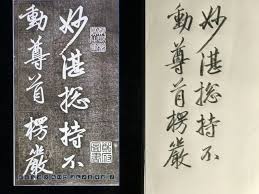 妙湛総持不
動尊首楞嚴
妙湛総持不
動尊首楞嚴